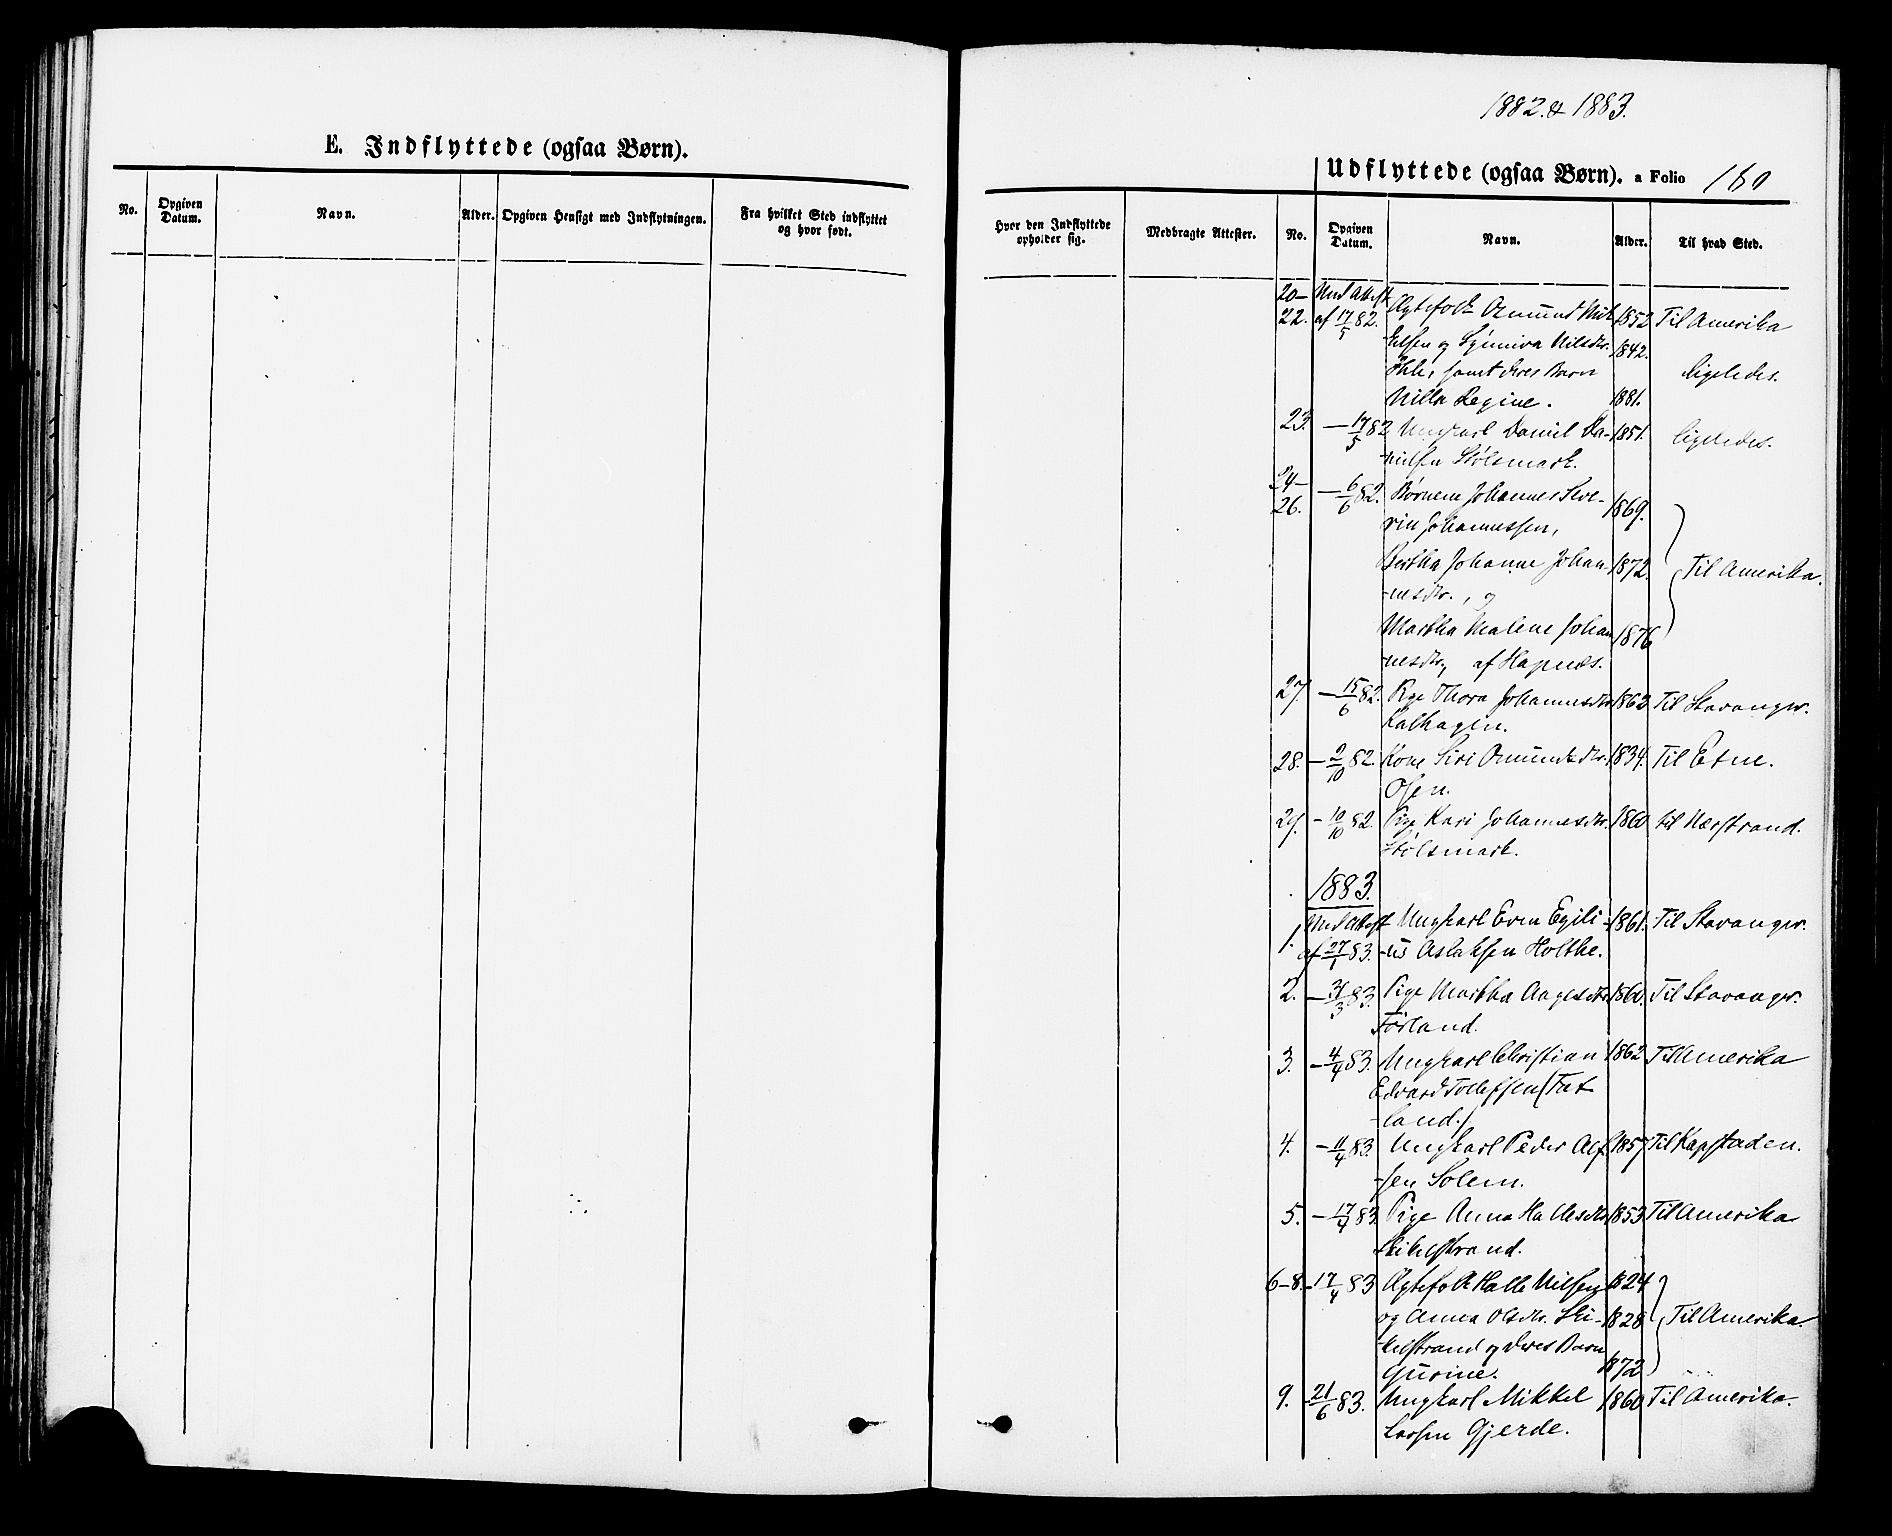 E. Indflyttede (ogsaa Børn).
No.
Opgiven Datum.
Navn.
Alder.
Opgiven Hensigt med Indflytningen.
Fra hvilket Sted indflyttet
og hvor født.
1882. & 1883.
Udflyttede (ogsaa Børn). a Folio 160
Hvor den Indflyttede
opholder sig.
Medbragte Attester.
No.
Opgiven Datum.
Navn.
Alder.
Til hvad Sted.
20– Med Attest Ægtefolk Omund Mik- 1852 Til Amerika
22. af 17/5 82. kelsen og Synniva Nilsdtr. 1842.
samt deres Barn ligeledes.
Nilla Regine. 1881.
23. – 17/5 82 Ungkarl Daniel Da- 1851. ligeledes.
nielsen Stølsmark.
24–
26. – 6/6 82. Børnene Johannes Seve- 1869.
rin Johannessen,
Bertha Johanne Johan- 1872. Til Amerika.
nesdtr., og
Martha Malene Johan- 1876
nesdtr, af Hapnæs.
27. – 15/6 82. Pige Thora Johannesdtr 1862 Til Stavanger.
Kalhagen.
28. – 2/10 82. Kone Siri Omundsdtr. 1834. Til Etne.
Osen.
29. – 10/10 82. Pige Kari Johannesdtr. 1860 til Nerstrand.
Stølsmark.
1883.
1. Med Attest Ungkarl Even Egili- 1861. Til Stavanger.
af 27/1 83. us Aslaksen Holthe.
2. – 31/3 83. Pige Martha Aagesdtr 1860. Til Stavanger.
Førland.
3. – 4/4 83. Ungkarl Christian 1862 Til Amerika
Edvard Tollefsen (Tat-
land.)
4. – 11/4 83. Ungkarl Peder Alf- 1857 Til Kapstaden.
sen Solem.
5. – 17/4 83 Pige Anna Hallesdtr 1853 Til Amerika
Skikelstrand.
6–8. – 17/4 83 Ægtefolk Halle Nilsen 1824
og Anna Olsdtr. Ski- 1828 Til Amerika.
kelstrand og deres Barn
Gurine. 1872
9. – 21/6 83. Ungkarl Mikkel 1860 Til Amerika.
Larsen Gjerde.